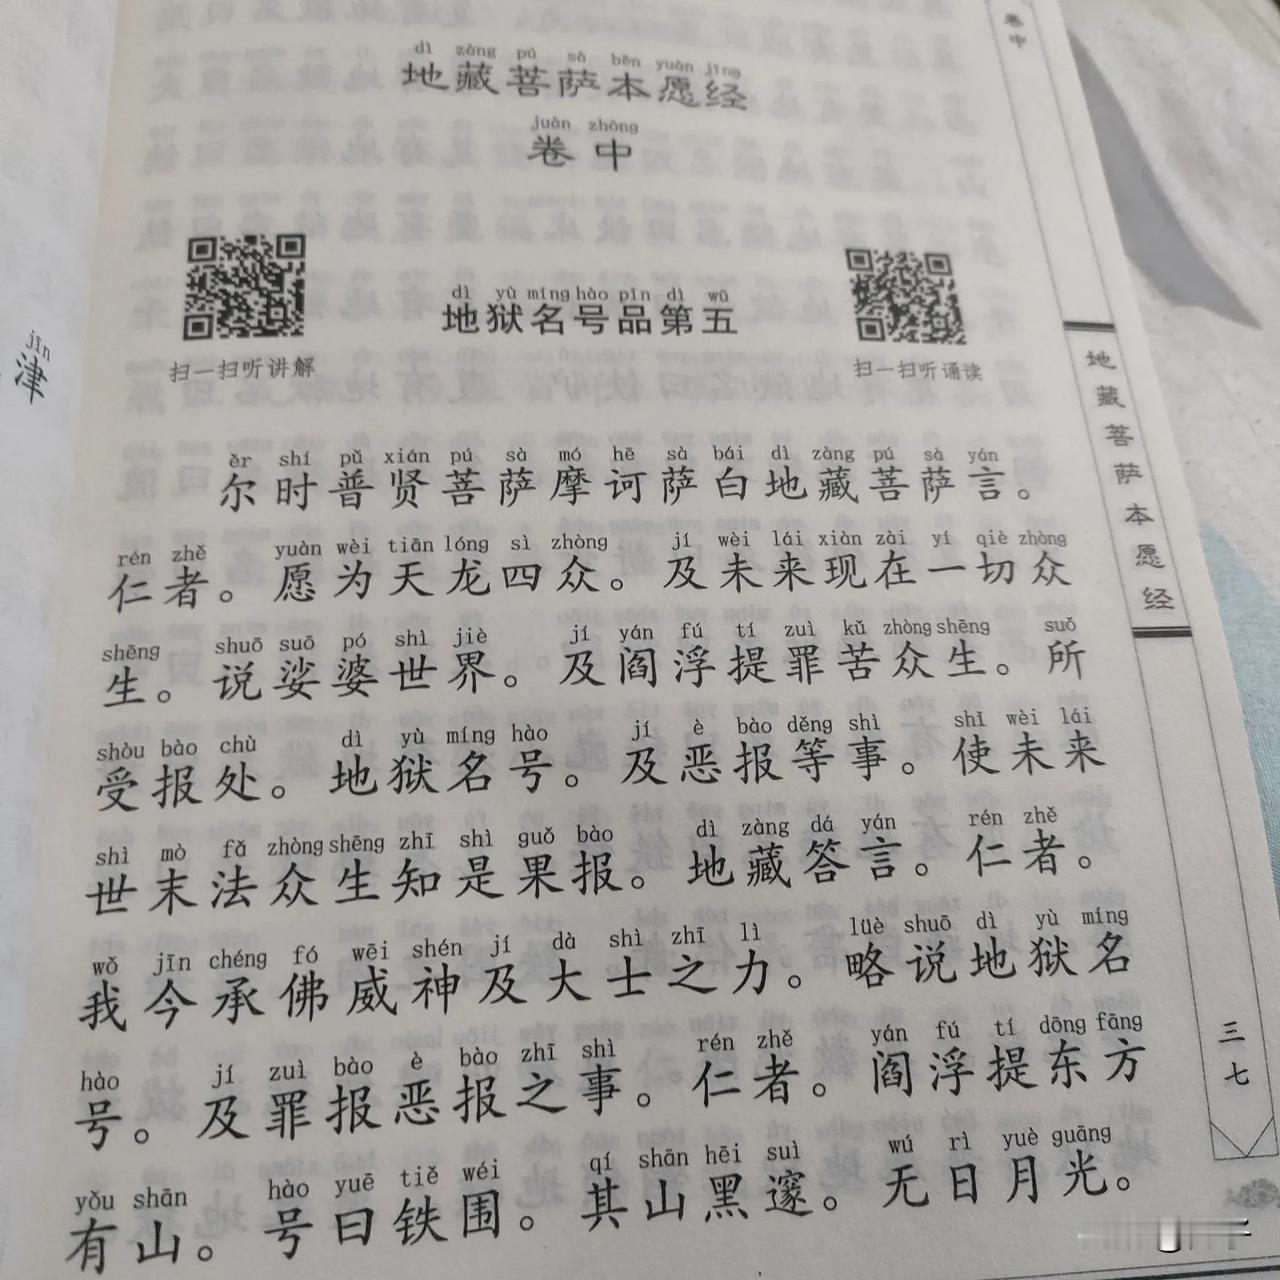 dì zàng pú sà běn yuàn jīng
地藏菩萨本愿经
juàn zhōng
卷中
dì yù míng hào pǐn dì wǔ
地狱名号品第五
扫一扫听讲解
扫一扫听诵读
ěr shí pǔ xián pú sà mó hē sà bái dì zàng pú sà yán
尔时普贤菩萨摩诃萨白地藏菩萨言。
rén zhě yuàn wèi tiān lóng sì zhòng jí wèi lái xiàn zài yí qiè zhòng
仁者。愿为天龙四众。及未来现在一切众
shēng shuō suō pó shì jiè jí yán fú tí zuì kǔ zhòng shēng suǒ
生。说娑婆世界。及阎浮提罪苦众生。所
shòu bào chù dì yù míng hào jí è bào děng shì shǐ wèi lái
受报处。地狱名号。及恶报等事。使未来
shì mò fǎ zhòng shēng zhī shì guǒ bào dì zàng dá yán rén zhě
世末法众生知是果报。地藏答言。仁者。
wǒ jīn chéng fó wēi shén jí dà shì zhī lì lüè shuō dì yù míng
我今承佛威神及大士之力。略说地狱名
hào jí zuì bào è bào zhī shì rén zhě yán fú tí dōng fāng
号。及罪报恶报之事。仁者。阎浮提东方
yǒu shān hào yuē tiě wéi qí shān hēi suì wú rì yuè guāng
有山。号曰铁围。其山黑邃。无日月光。
卷中
地藏菩萨本愿经
三七
jīn
津